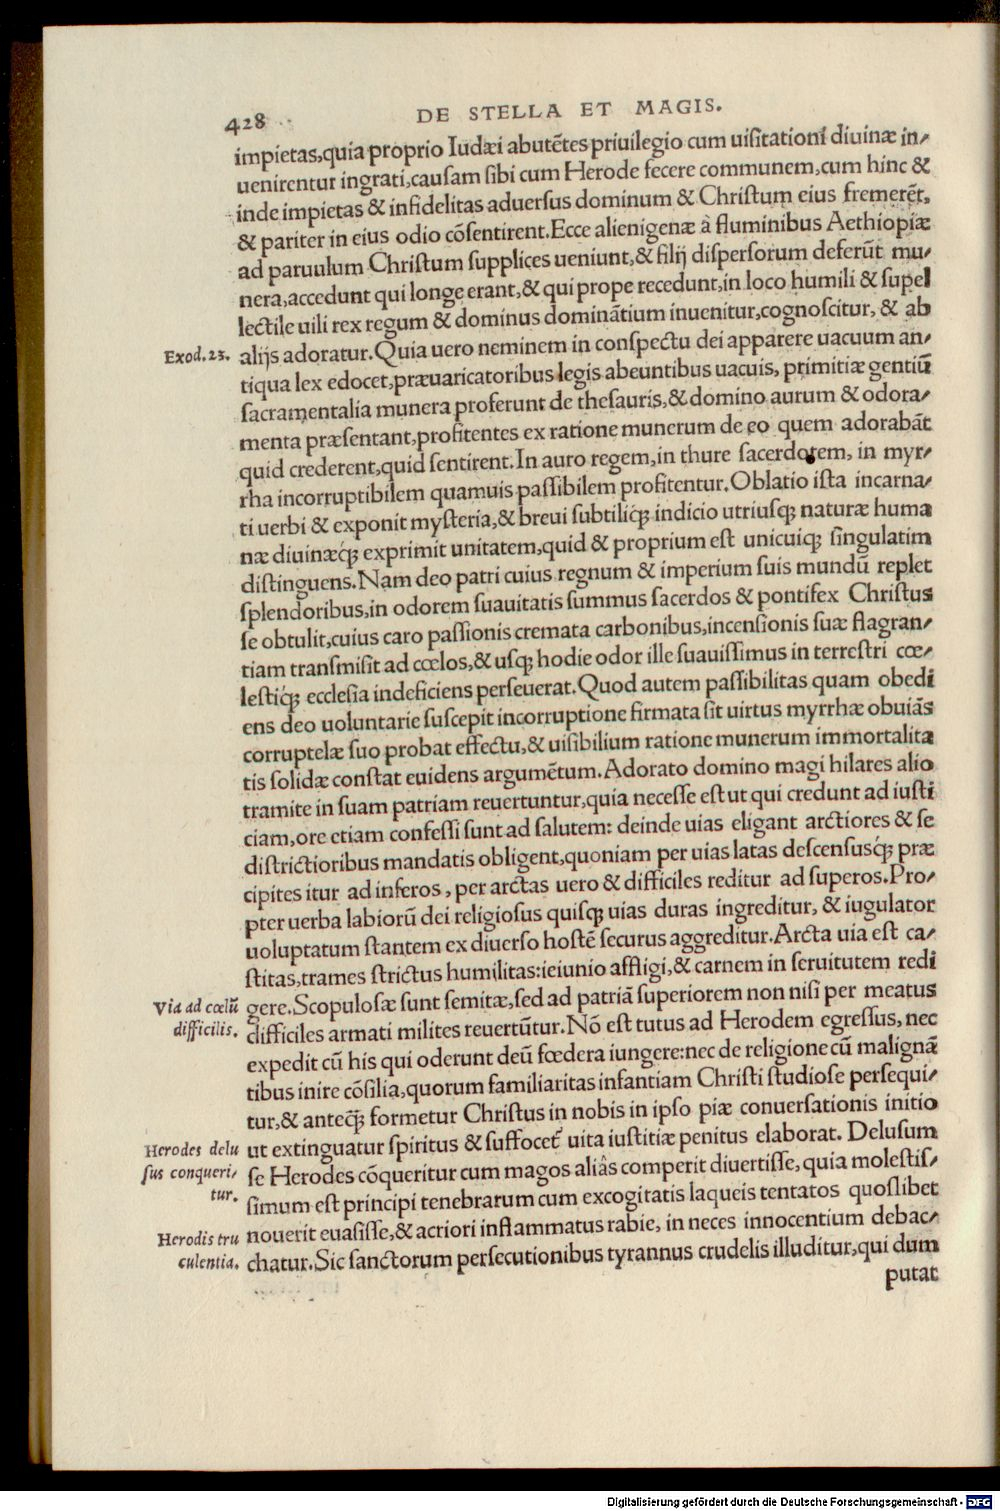 428
DE STELLA ET MAGIS.
impietas,quia proprio Iudæi abutẽtes priuilegio cum uisitationi diuinæ in/
uenirentur ingrati,causam sibi cum Herode fecere communem,cum hinc &
inde impietas & infidelitas aduersus dominum & Christum eius fremerẽt,
& pariter in eius odio cõsentirent.Ecce alienigenæ à fluminibus Aethiopiæ
ad paruulum Christum supplices ueniunt,& filij dispersorum deferũt mu/
nera,accedunt qui longe erant,& qui prope recedunt,in loco humili & supel
lectile uili rex regum & dominus dominãtium inuenitur,cognoscitur, & ab
Exod.23.
alijs adoratur.Quia uero neminem in conspectu dei apparere uacuum an/
tiqua lex edocet,præuaricatoribus legis abeuntibus uacuis, primitiæ gentiũ
sacramentalia munera proferunt de thesauris,& domino aurum & odora/
menta præsentant,profitentes ex ratione munerum de eo quem adorabãt
quid crederent,quid sentirent.In auro regem,in thure sacerdotem, in myr/
rha incorruptibilem quamuis passibilem profitentur.Oblatio ista incarna/
ti uerbi & exponit mysteria,& breui subtiliq́; indicio utriusq; naturæ huma
næ diuinæq́; exprimit unitatem,quid & proprium est unicuiq; singulatim
distinguens.Nam deo patri cuius regnum & imperium suis mundũ replet
splendoribus,in odorem suauitatis summus sacerdos & pontifex Christus
se obtulit,cuius caro passionis cremata carbonibus,incensionis suæ flagran/
tiam transmisit ad cœlos,& usq; hodie odor ille suauissimus in terrestri cœ/
lestiq́; ecclesia indeficiens perseuerat.Quod autem passibilitas quam obedi
ens deo uoluntarie suscepit incorruptione firmata sit uirtus myrrhæ obuiãs
corruptelæ suo probat effectu,& uisibilium ratione munerum immortalita
tis solidæ constat euidens argumẽtum.Adorato domino magi hilares alio
tramite in suam patriam reuertuntur,quia necesse est ut qui credunt ad iusti
ciam,ore etiam confessi sunt ad salutem: deinde uias eligant arctiores & se
districtioribus mandatis obligent,quoniam per uias latas descensusq́; præ
cipites itur ad inferos, per arctas uero & difficiles reditur ad superos.Pro/
pter uerba labiorũ dei religiosus quisq; uias duras ingreditur, & iugulator
uoluptatum stantem ex diuerso hostẽ securus aggreditur.Arcta uia est ca/
stitas,trames strictus humilitas:ieiunio affligi,& carnem in seruitutem redi
Via ad cœlũ
gere.Scopulosæ sunt semitæ,sed ad patriã superiorem non nisi per meatus
difficilis.
difficiles armati milites reuertũtur.Nõ est tutus ad Herodem egressus, nec
expedit cũ his qui oderunt deũ fœdera iungere:nec de religione cũ malignã
tibus inire cõsilia,quorum familiaritas infantiam Christi studiose persequi/
tur,& anteq̃; formetur Christus in nobis in ipso piæ conuersationis initio
Herodes delu
ut extinguatur spiritus & suffocet̃ uita iustitiæ penitus elaborat. Delusum
sus conqueri/
se Herodes cõqueritur cum magos aliâs comperit diuertisse,quia molestis/
tur.
simum est principi tenebrarum cum excogitatis laqueis tentatos quoslibet
Herodis tru
nouerit euasisse,& acriori inflammatus rabie, in neces innocentium debac/
culentia.
chatur.Sic sanctorum persecutionibus tyrannus crudelis illuditur,qui dum
putat
Digitalisierung gefördert durch die Deutsche Forschungsgemeinschaft - DFG